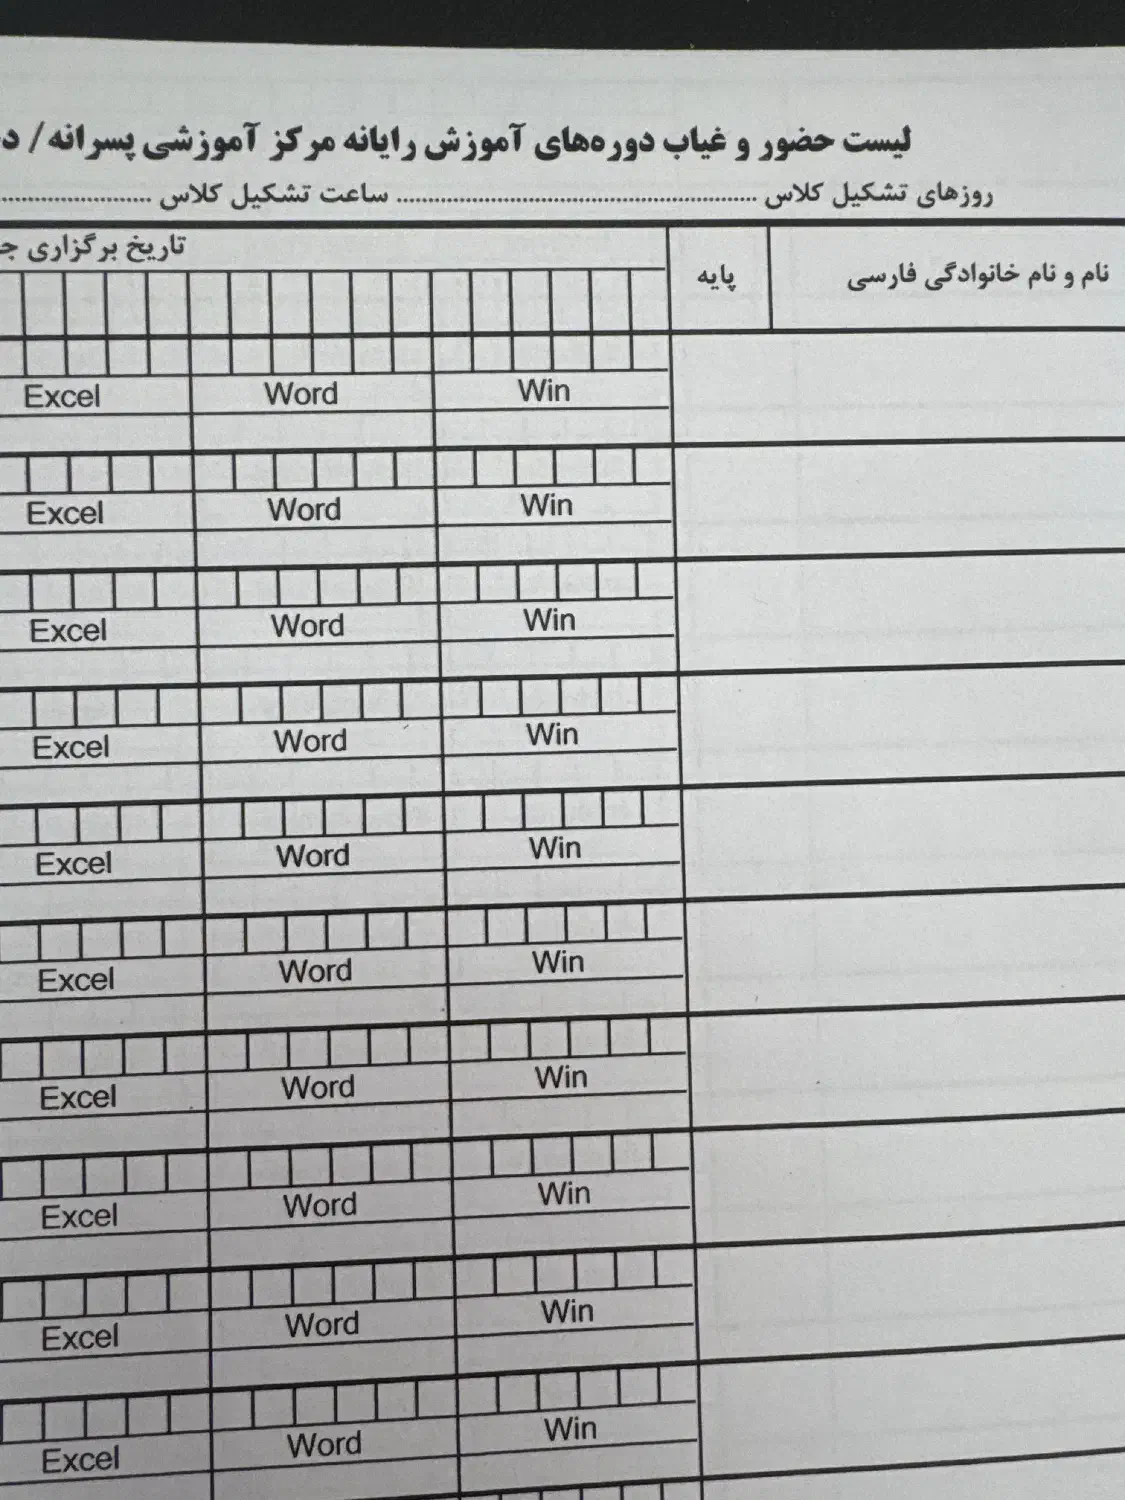 لیست حضور و غیاب دوره‌های آموزش رایانه مرکز آموزشی پسرانه /
روزهای تشکیل کلاس ........................................ ساعت تشکیل کلاس ....................
نام و نام خانوادگی فارسی پایه تاریخ برگزاری
Win Word Excel
Win Word Excel
Win Word Excel
Win Word Excel
Win Word Excel
Win Word Excel
Win Word Excel
Win Word Excel
Win Word Excel
Win Word Excel